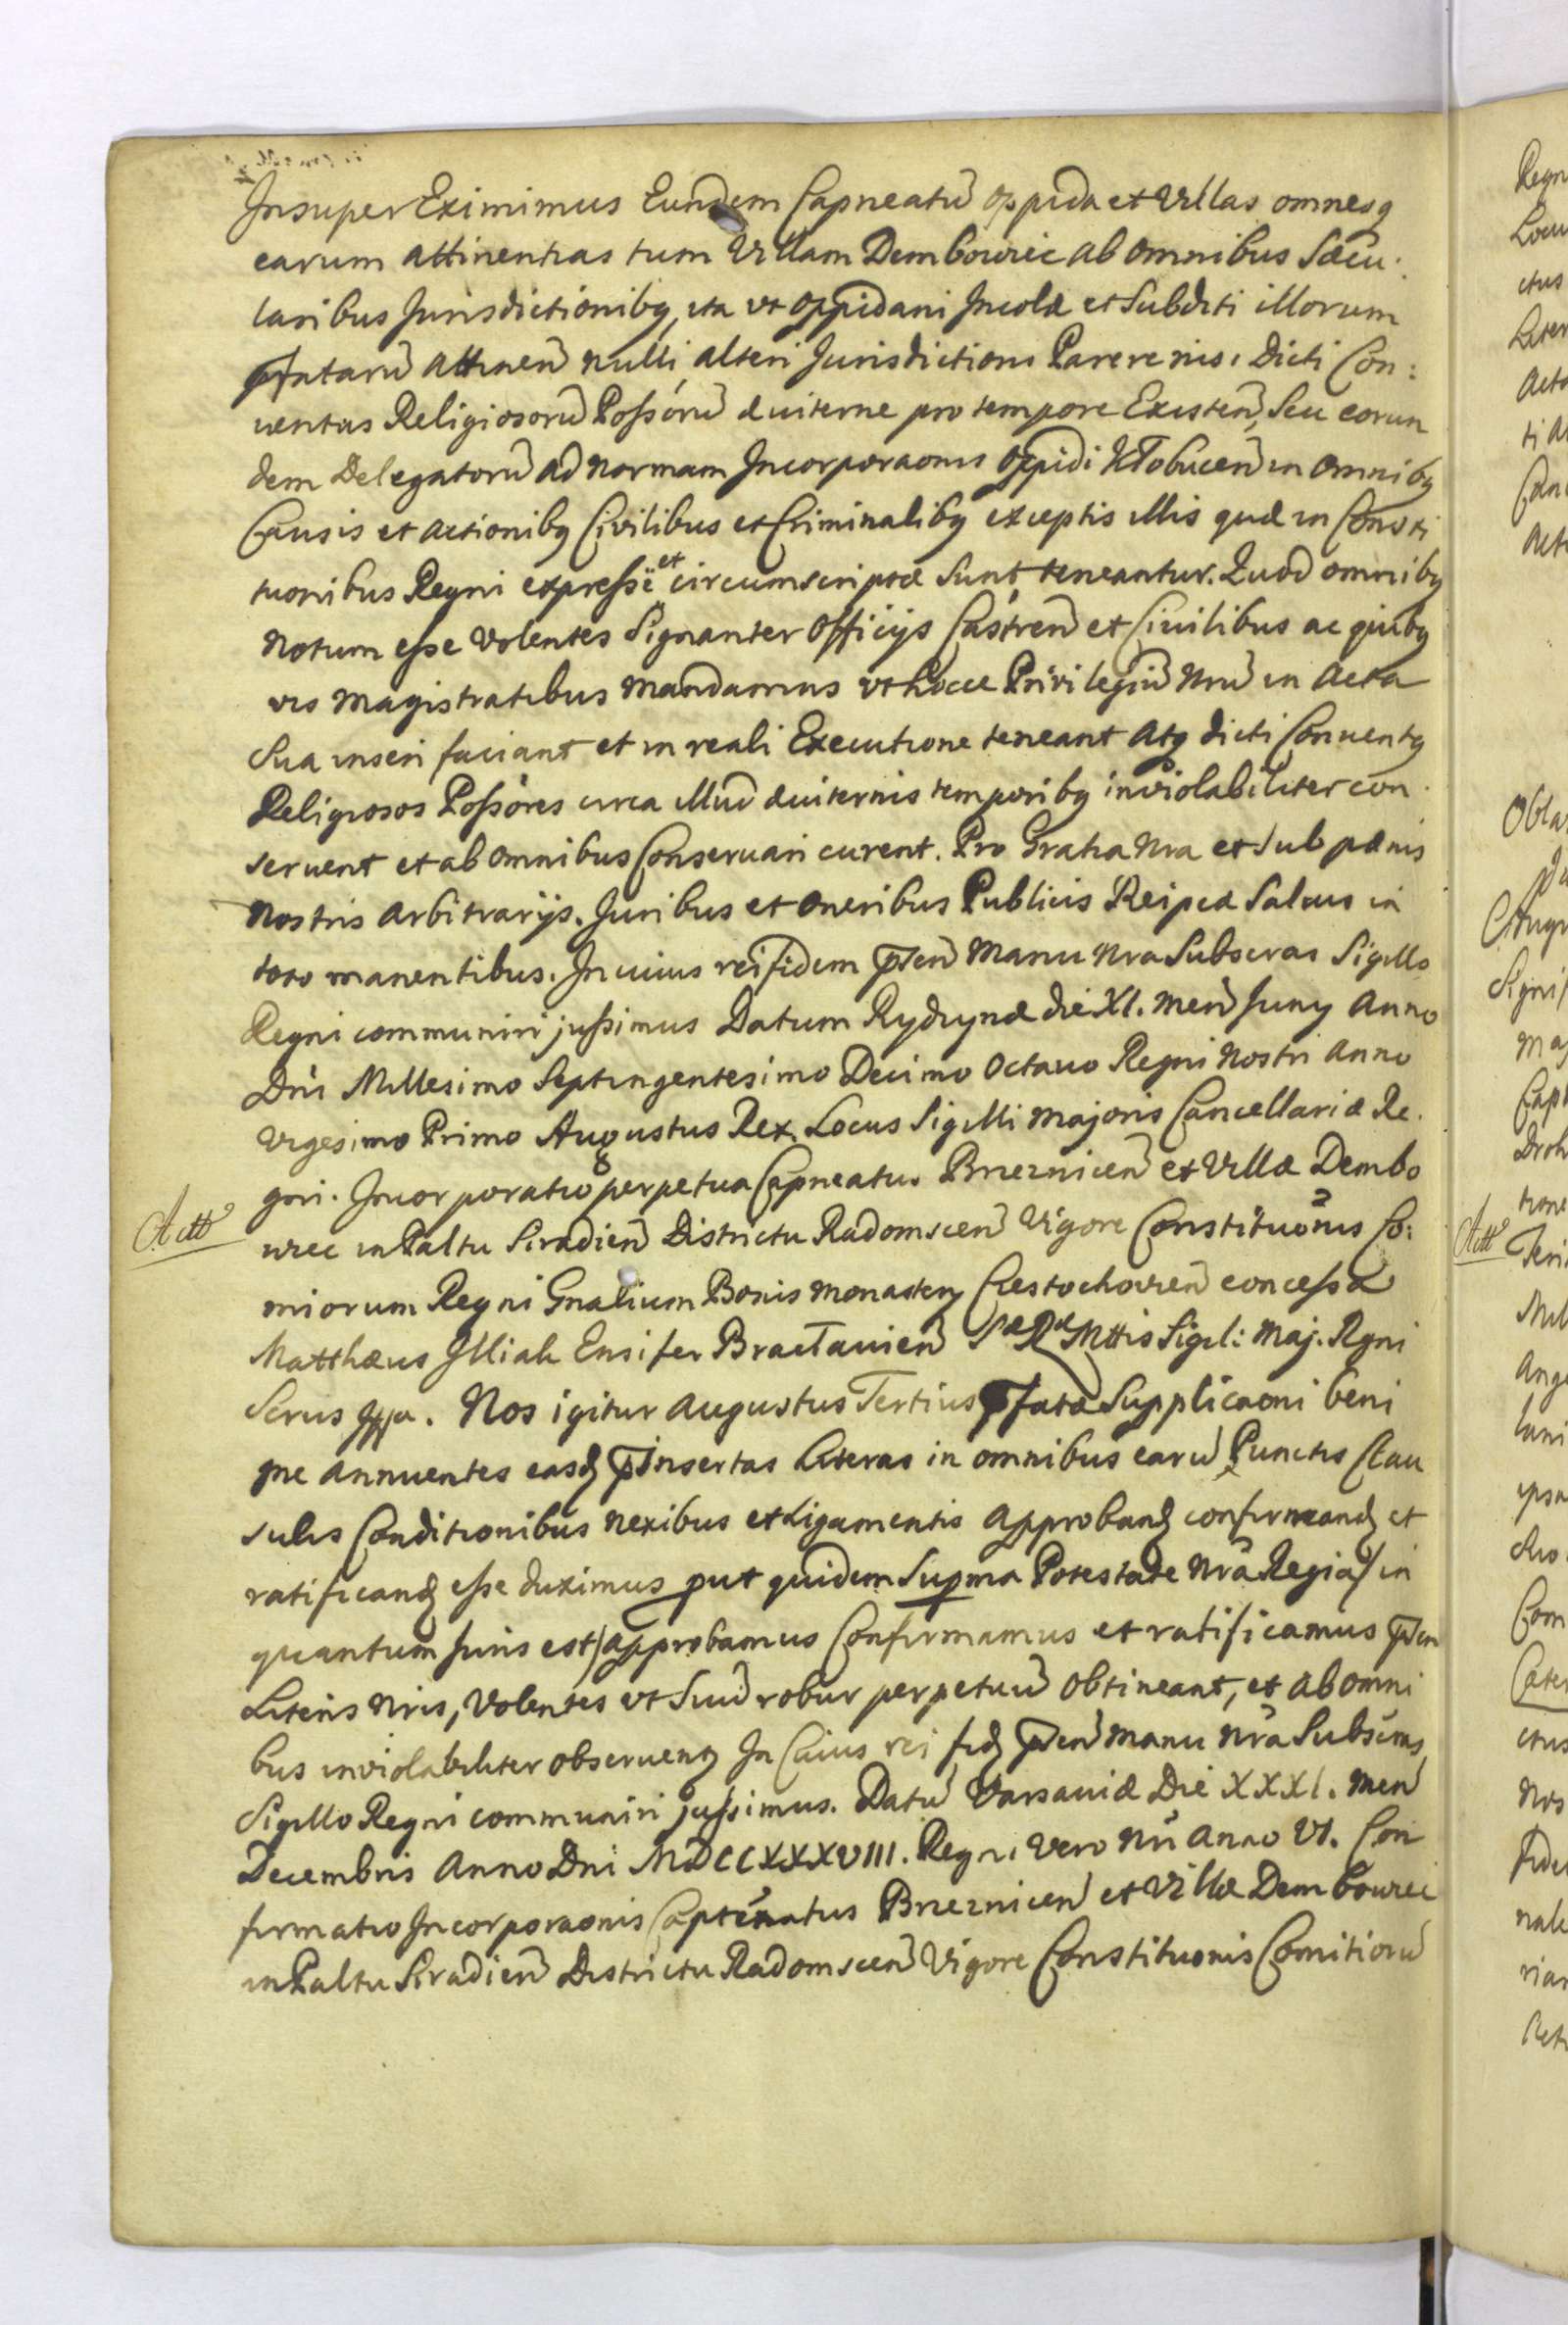 Insuper Eximimus Eundem Capneatū oppida et Villas omnesq
earum attinentias tum Villam Dembowiec ab omnibus Sæcu:
laribus Jurisdictionibq, ita vt oppidani Incolæ et Subditi illorum
pfatarū attinen̄ nulli alteri Jurisdictioni Parere nisi Dicti Con:
uentus Religiosorū Poſsorū æuiterne pro tempore Existen̄, Seu eorun
dem Delegatorū ad normam Incorporaonis oppidi Kłobucen̄ in omnibq
Causis et actionibq Civilibus et Criminalibq exceptis illis quæ in Consti
tuonibus Regni expreſsè et circumscriptæ Sunt, teneantur. Quod omnibq
notum eſse volentes Signanter Officijs Castren̄ et Ciuilibus ac quibq
vis magistratibus mandamus vt hocce Privilegiū Nrū in Acta
Sua inseri faciant et in reali Executione teneant atq dicti Conuentq
Religiosos Poſsores circa illud æuiternis temporibq inviolabiliter con
seruent et ab omnibus Conseruari curent. Pro Gratia Nra et sub pænis
nostris arbitrarijs. Juribus et oneribus Publicis Reipcæ Saluis in
toto manentibus. In cuius rei fidem p̄ten̄ Manu Nra Subscras Sigillo
Regni communiri juſsimus Datum Rydzynæ die XI. men̄ Juny Anno
Dni Millesimo Septingentesimo Decimo Octauo Regni Nostri anno
Vigesimo Primo Augustus Rex. Locus Sigilli majoris Cancellariæ Re.
gni. Incorporatio perpetua Capneatus Brzeznicen̄ et Villæ Dembo
Actt
wiec in Paltu Siradien̄ Districtu Radomscen̄ Vigore Constituonis Co:
miorum Regni Gnalium Bonis Monastery Częstochovien̄ conceſsæ
Matthæus Illiak Ensifer Bracłavien̄ Sæ Ræ Mttis Sigil: Maj. Rgni
Scrus mppa. Nos igitur Augustus Tertius p̄fatæ Supplicaoni beni
gne annuentes easq p̄insertas Literas in omnibus earū Punctis Clau
sulis Conditionibus nexibus et Ligamentis approband confirmand et
ratificand eſse duximus put quidem Supma Potestate Nra Regia/ in
quantum Juris est/ approbamus Confirmamus et ratificamus p̄ten
Literis Nris, Volentes vt Suū robur perpetuū obtineant, et ab omni
bus inviolabiliter obseruentq In Cuius rei fidq p̄ten̄ manu Nra Subscras
Sigillo Regni communiri juſsimus. Datū Varsaviæ Die XXXI. Men̄
Decembris Anno Dni MDCCXXXVIII. Regni Vero Nri Anno VI. Con
firmatio Incorporaonis Capteneatus Brzeznicen̄ et Villæ Dembowiec
in Paltu Siradien̄ Districtu Radomscen̄ Vigore Constituonis Comitiorū